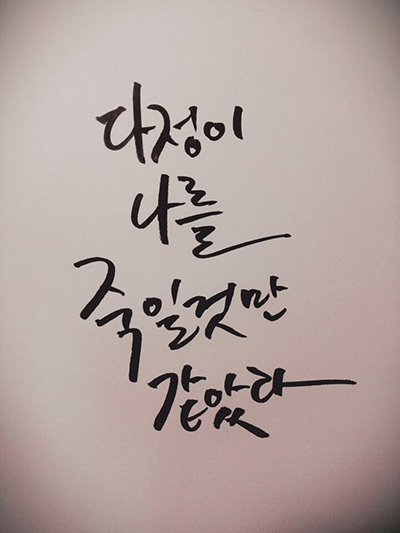 다정이
나를
죽일것만
같았다